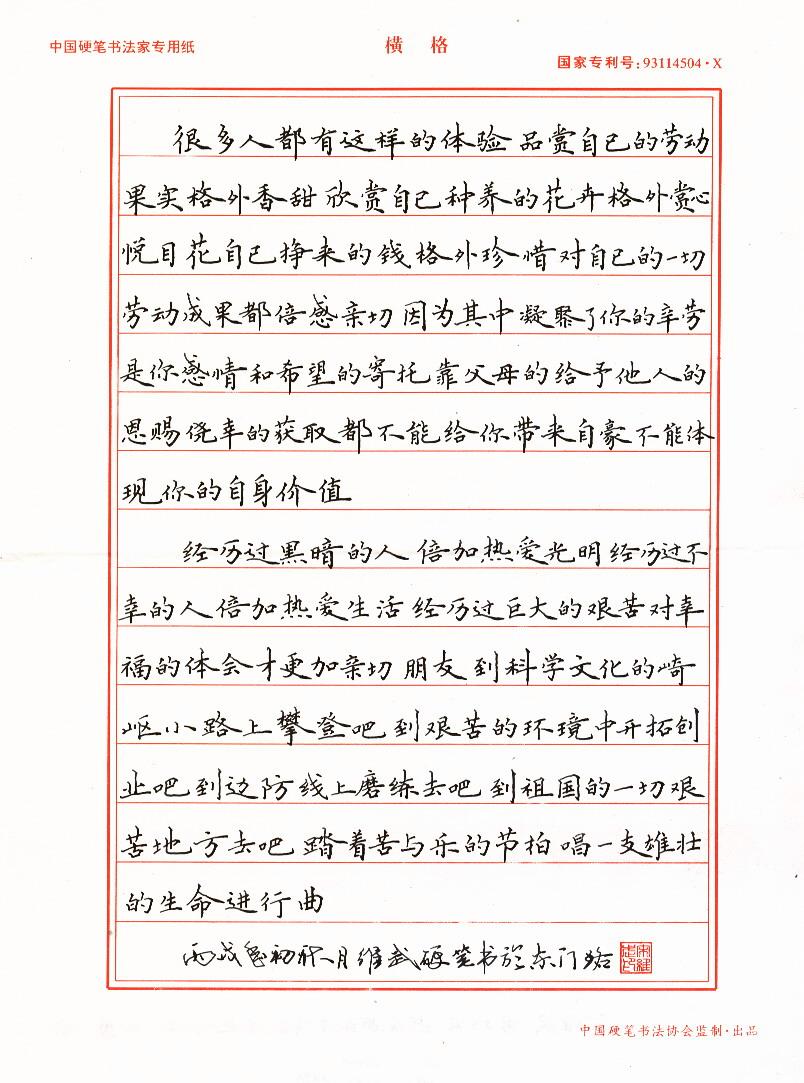 中国硬笔书法家专用纸
横 格
国家专利号:93114504·X
很多人都有这样的体验 品赏自己的劳动
果实格外香甜 欣赏自己种养的花卉格外赏心
悦目 花自己挣来的钱格外珍惜 对自己的一切
劳动成果都倍感亲切 因为其中凝聚了你的辛劳
是你感情和希望的寄托 靠父母的给予他人的
恩赐侥幸的获取都不能给你带来自豪不能体
现你的自身价值
经历过黑暗的人 倍加热爱光明 经历过不
幸的人倍加热爱生活 经历过巨大的艰苦对幸
福的体会才更加亲切 朋友 到科学文化的崎
岖小路上攀登吧 到艰苦的环境中开拓创
业吧 到边防线上磨练去吧 到祖国的一切艰
苦地方去吧 踏着苦与乐的节拍 唱一支雄壮
的生命进行曲
丙戌 初秋 月维武硬笔书于东门路
中国硬笔书法协会监制·出品